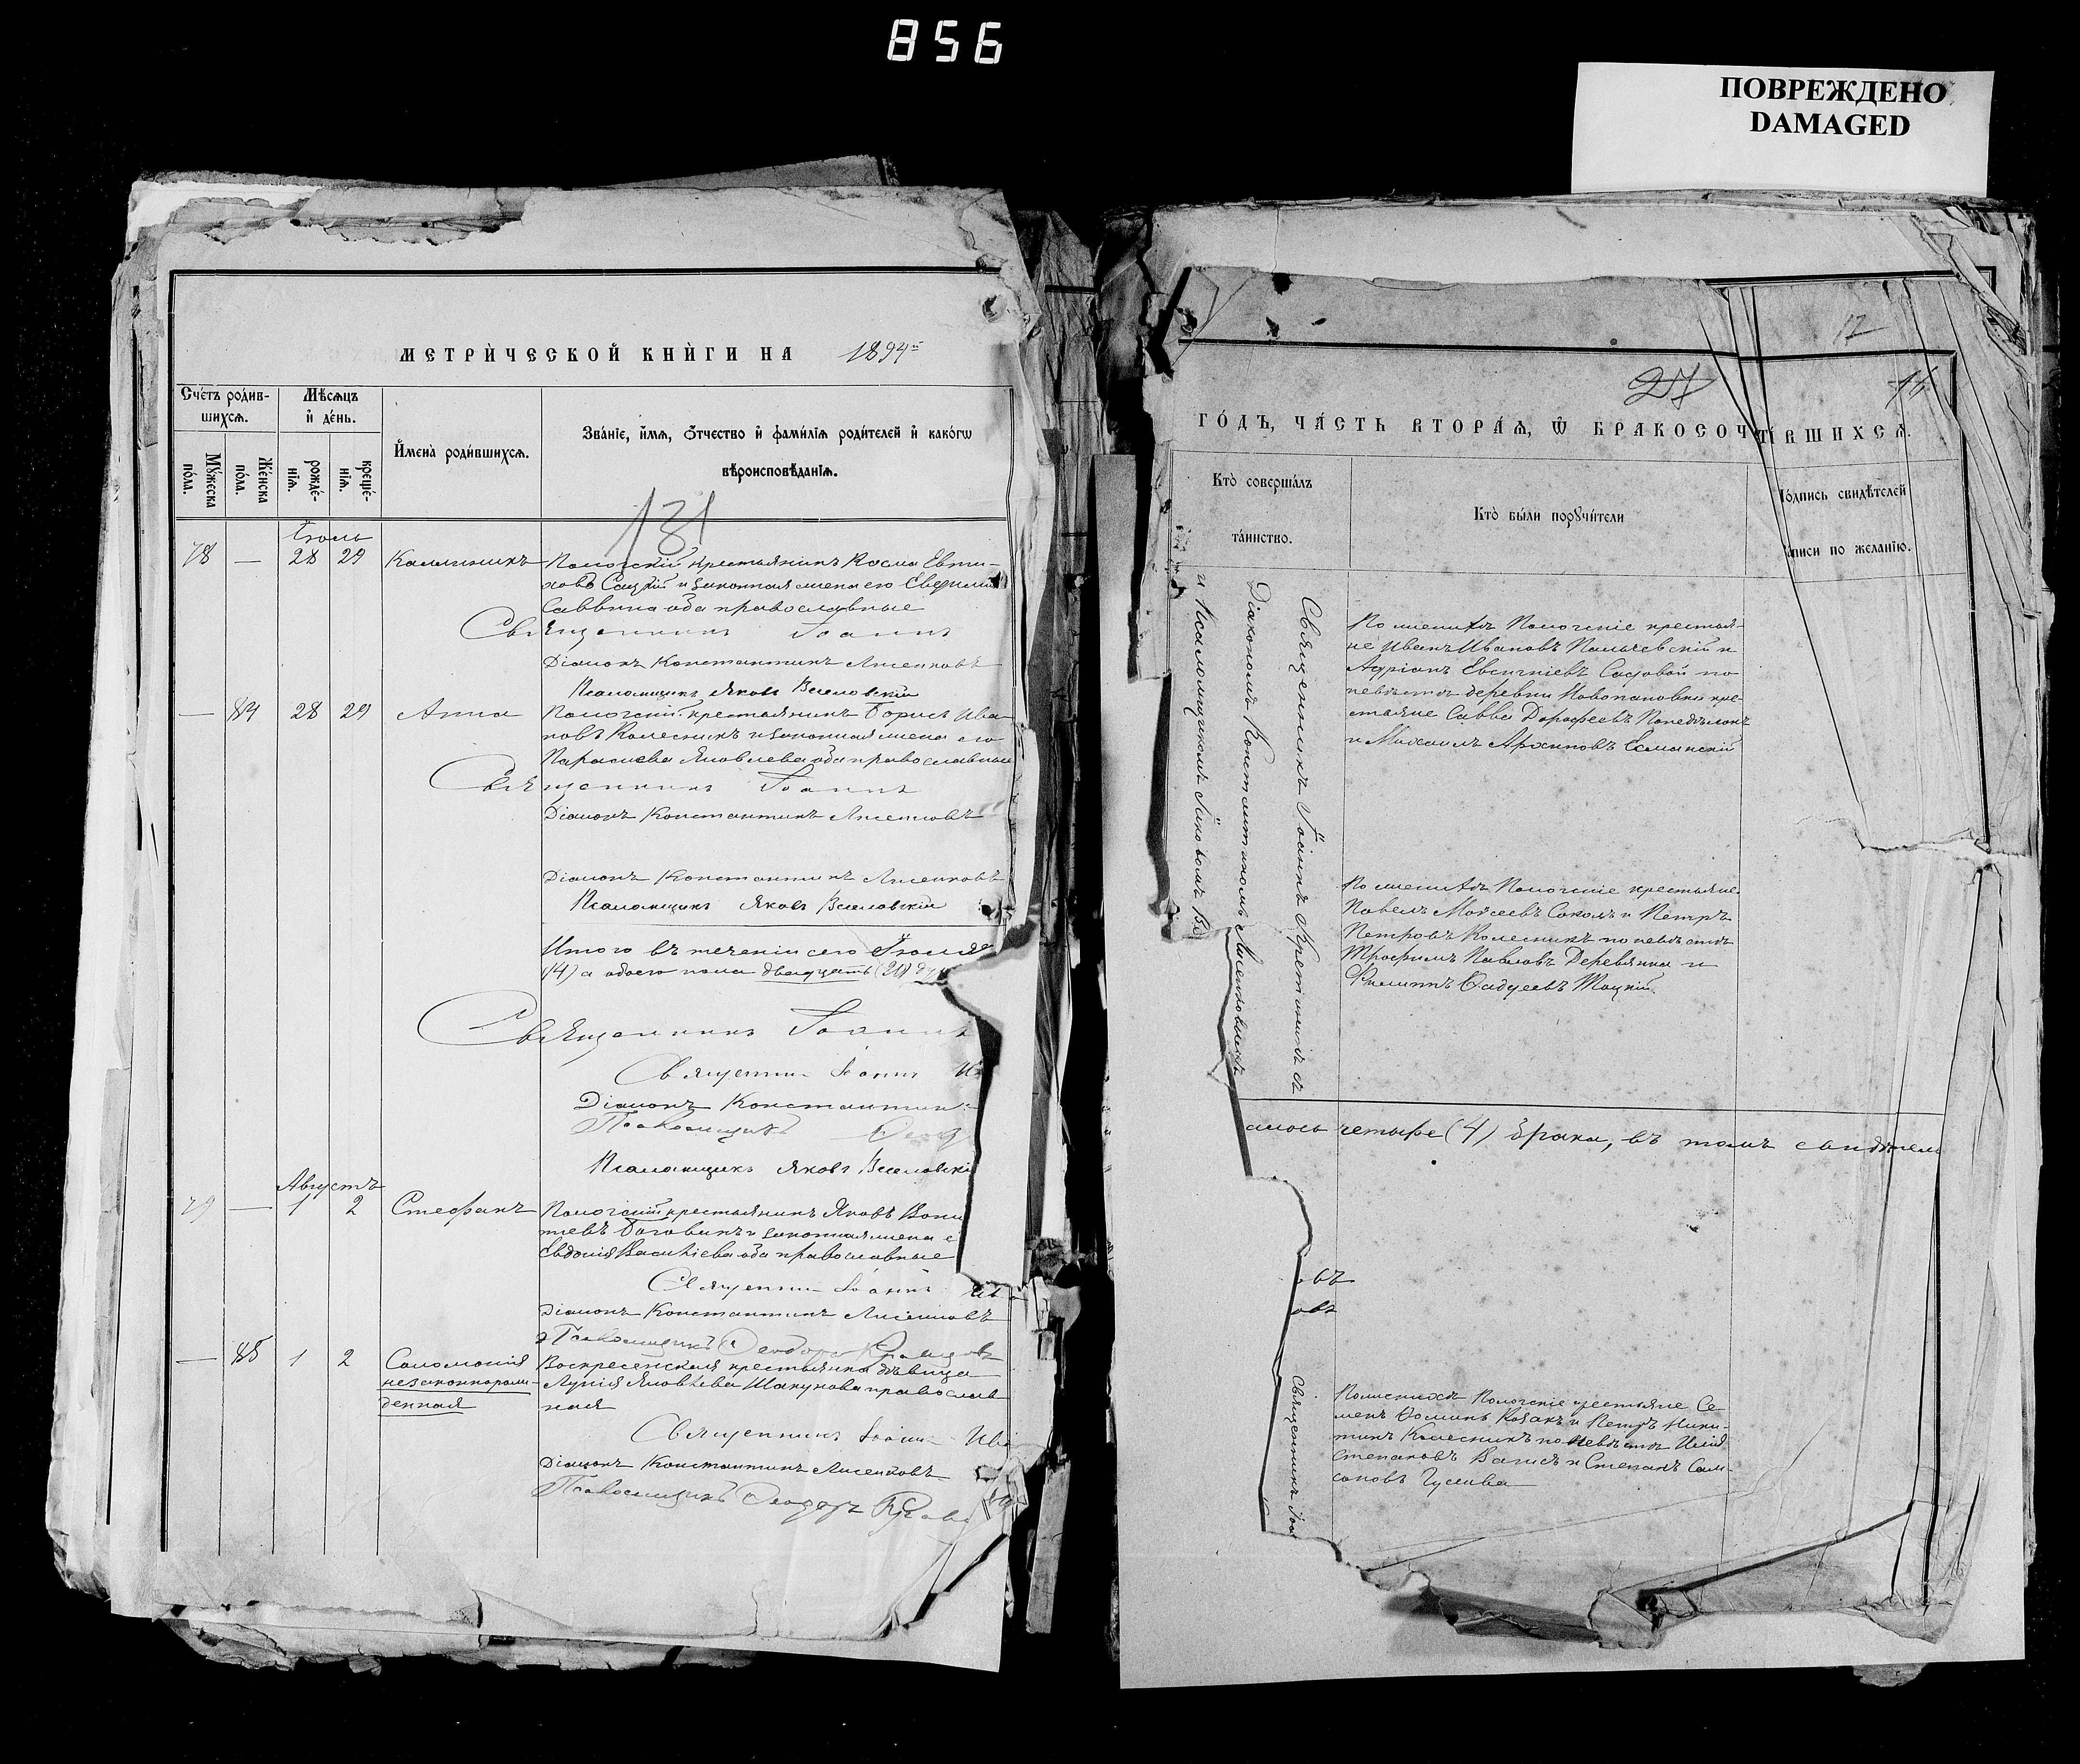 856
ПОВРЕЖДЕНО
DAMAGED
МЕТРИ́ЧЕСКОЙ КНИ́ГИ НА 1894й
Сче́тъ роди́в-
шихсѧ.
Мѣ́сѧцъ
и҆ де́нь.
И҆мена̀ роди́вшихсѧ.
Зва́нїе, и҆́мѧ, ѻ҆́тчество и҆ фами́лїѧ роди́телей и҆ како́гѡ
вѣроисповѣ́данїѧ.
Мꙋ́жеска
по́ла.
Же́нска
по́ла.
рожде́-
нїѧ.
креще́-
нїѧ.
131
Іюль
78 — 28 29 Каллиникъ Пологскій крестьянинъ Косма Евти-
ховъ Сацкій и законная жена его Евфимія
Саввина оба православные
Священникъ Іоаннъ
Діаконъ Константинъ Лисенковъ
Псаломщикъ Яковъ Веселовскій
— 84 28 29 Анна Пологскій крестьянинъ Борисъ Ива-
новъ Колесникъ и законная жена его
Параскева Яковлева оба православные
Священникъ Іоаннъ
Діаконъ Константинъ Лисенковъ
Діаконъ Константинъ Лисенковъ
Псаломщикъ Яковъ Веселовскій
Итого въ теченіи сего Іюля
(14) а обоего пола двадцать
Священникъ Іоаннъ
Священникъ Іоаннъ
Діаконъ Константинъ
Псаломщикъ
Псаломщикъ Яковъ Веселовскій
Августъ
79 — 1 2 Стефанъ Пологскій крестьянинъ Яковъ
законная жена
Евдокія Василіева оба православные
Священникъ Іоаннъ
Діаконъ Константинъ Лисенковъ
Псаломщикъ Ѳеодоръ
— 85 1 2 Соломонія Воскресенская крестьянка дѣвица
незаконнорож- Лукія Яковлева Шакунова православ-
денная ная
Священникъ Іоаннъ
Діаконъ Константинъ Лисенковъ
Псаломщикъ Ѳеодоръ
12
27
ГО́ДЪ, ЧА́СТЬ ВТОРА́Ѧ, Ѽ БРАКОСОЧТА́ВШИХСѦ.
Кто̀ соверша́лъ
та́инство.
Кто̀ бы́ли порꙋчи́тели
по́дпись свидѣ́телей
за́писи по жела́нїю.
Священникъ Іоаннъ съ
Діакономъ Константиномъ Лисенковымъ
и Псаломщикомъ Яковомъ
По женихѣ Пологскіе крестья-
не Иванъ Ивановъ Пальчевскій и
Адріанъ Евсигніевъ Садовой по
невѣстѣ деревни Новопавловки кре-
стьяне Савва Дорофеевъ Понедѣлокъ
и Михаилъ Архиповъ Есманскій
По женихѣ Пологскіе крестьяне
Павелъ Моѵсеевъ Соколъ и Петръ
Петровъ Колесникъ по невѣстѣ
Трофимъ Павловъ Деревянка и
Филиппъ Ѳадеевъ Тоцкій.
алось четыре (4) брака, въ томъ свидѣтел
овъ
овъ
Священникъ Іоа
По женихѣ Пологскіе крестьяне Се-
менъ Ѳоминъ Козакъ и Петръ Ники-
тинъ Колесникъ по невѣстѣ Илія
Степановъ и Степанъ Сам-
соновъ Гуслива